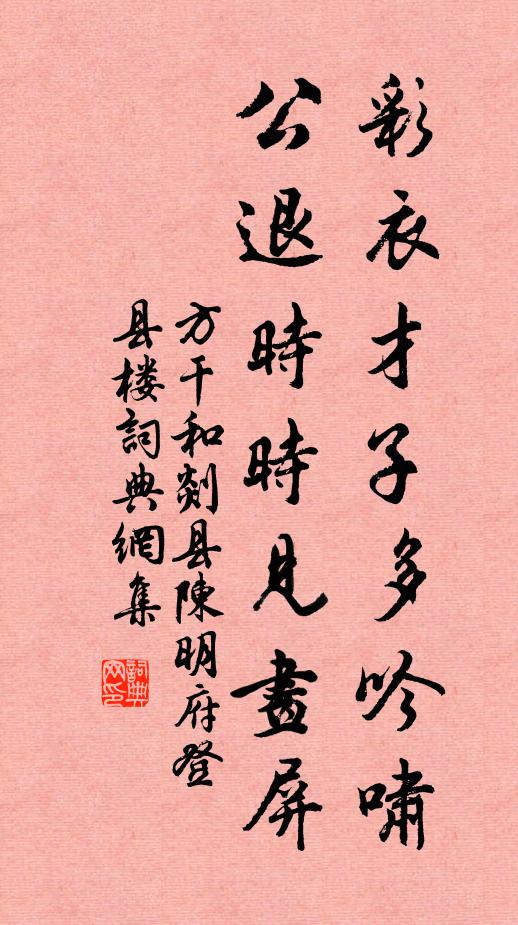 彩衣才子多吟啸
公退時時見畫屏
方干和剡县陳明府登
县楼詞典網集
詞典網印